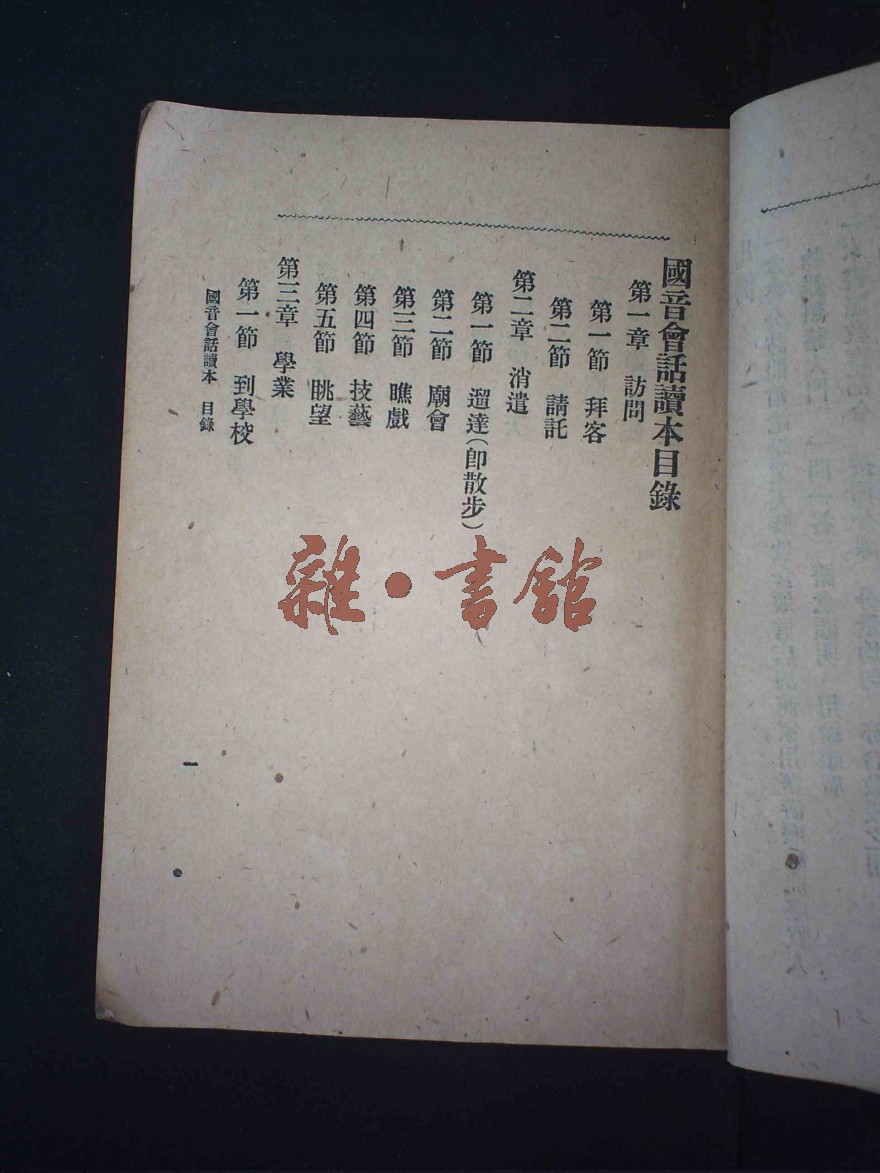 國音會話讀本目錄
第一章 訪問
第一節 拜客
第二節 請託
第二章 消遣
第一節 遛達(即散步)
第二節 廟會
第三節 瞧戲
第四節 技藝
第五節 眺望
第三章 學業
第一節 到學校
國音會話讀本 目錄
一
雜·書館